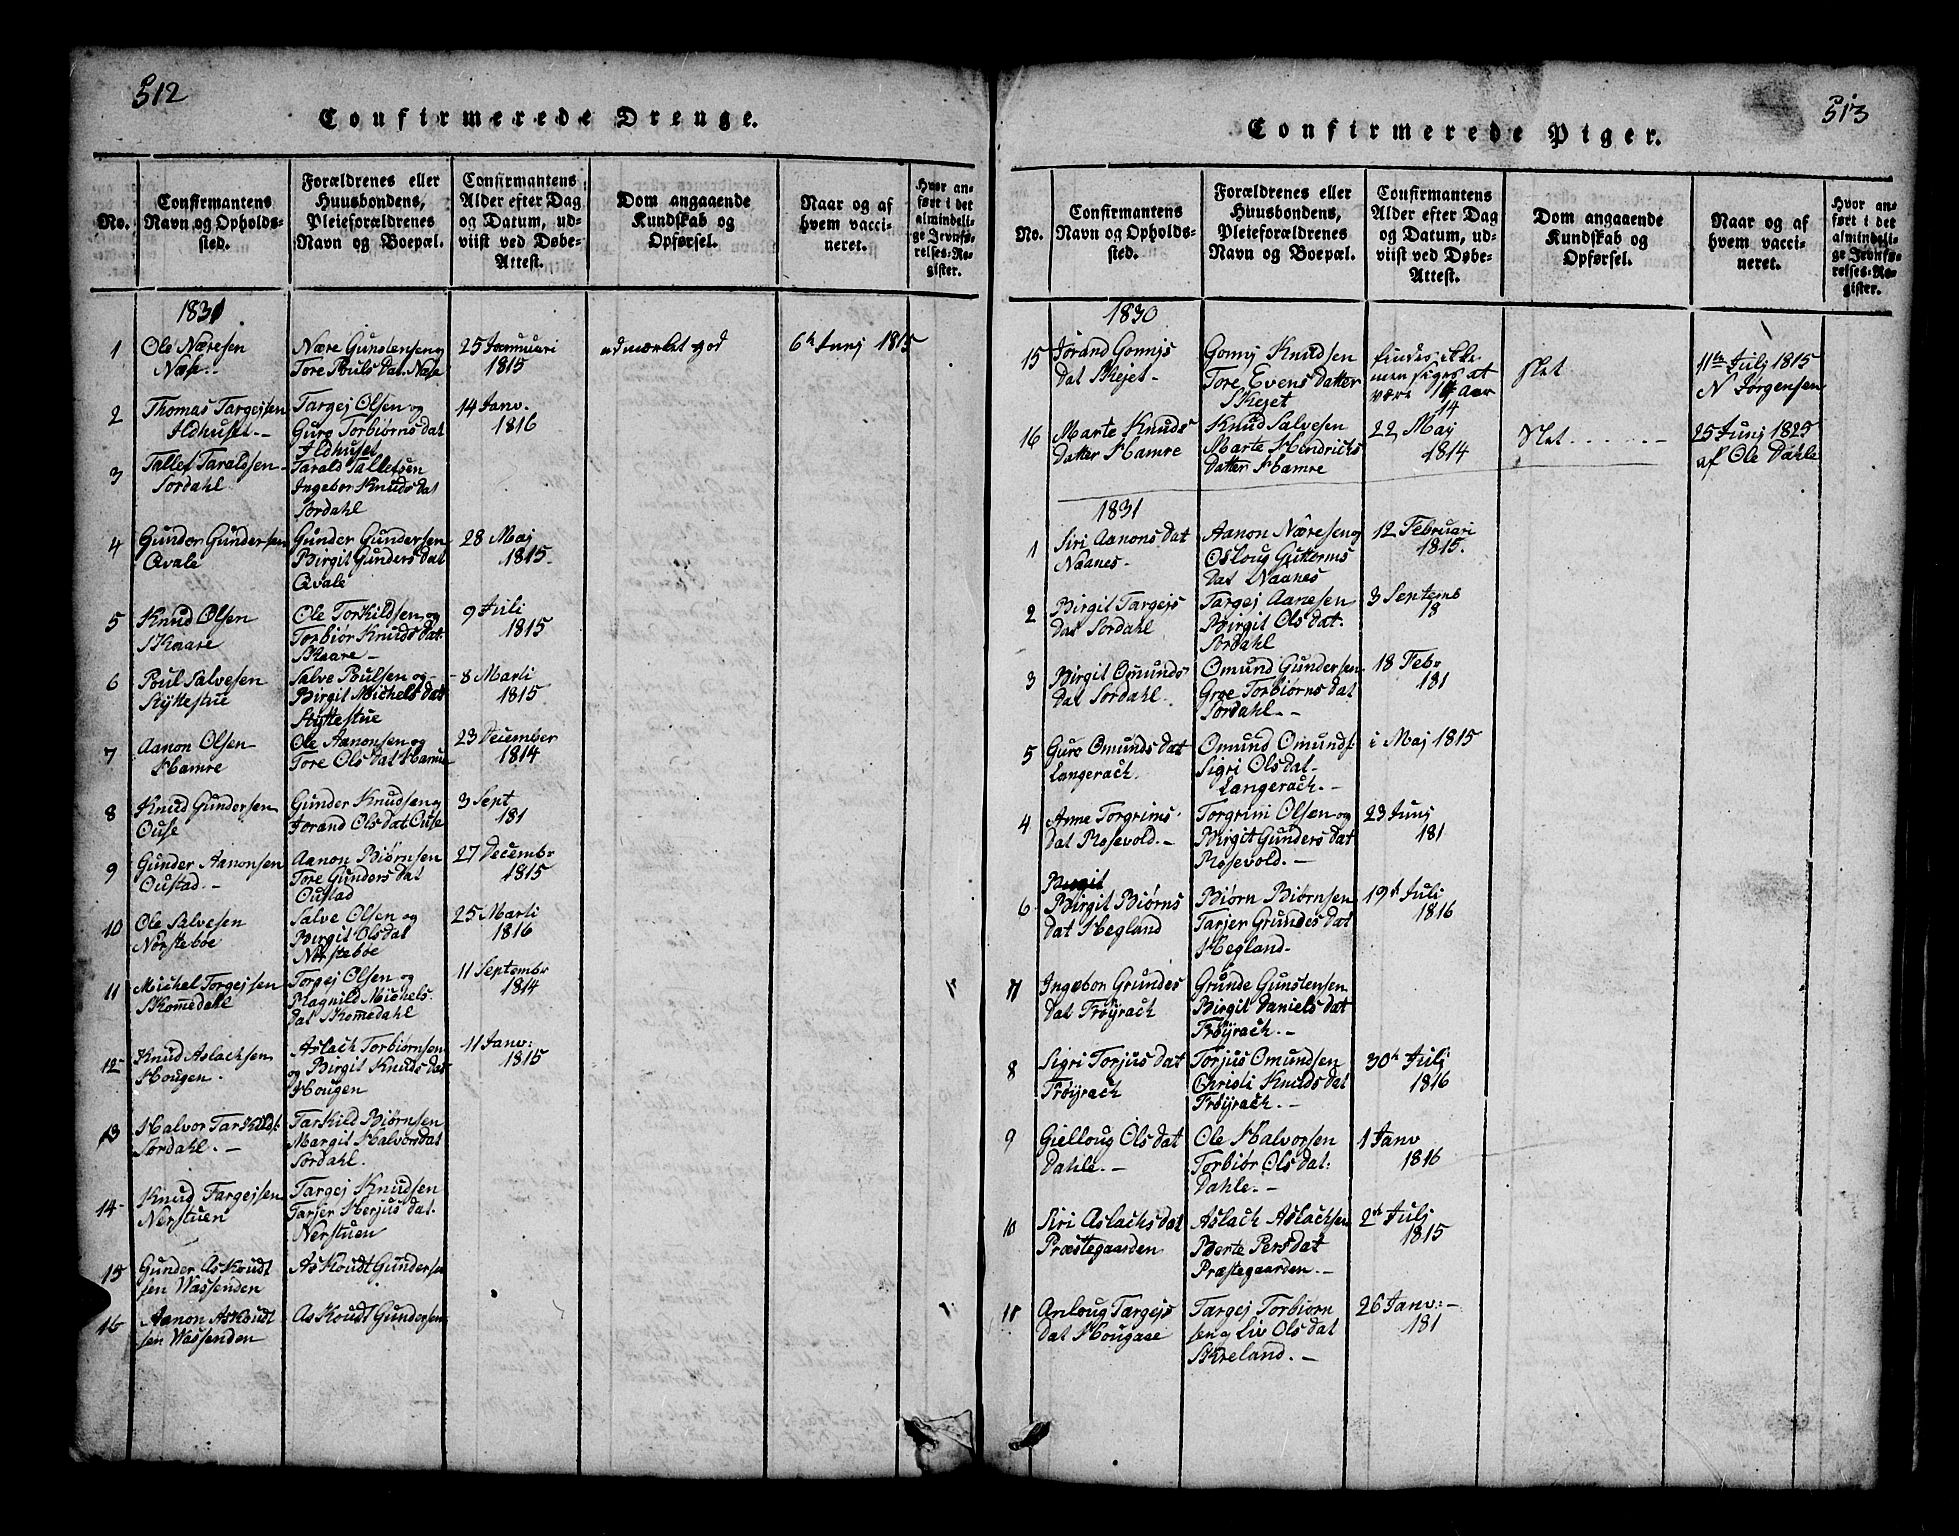 512
Confirmerede Drenge.
No.
Confirmantens
Navn og Opholds-
sted.
Forældrenes eller
Huusbondens,
Pleieforældrenes
Navn og Boepæl.
Confirmantens
Alder efter Dag
og Datum, ud-
viist ved Døbe-
Attest.
Dom angaaende
Kundskab og
Opførsel.
Naar og af
hvem vacci-
neret.
Hvor an-
ført i det
almindeli-
ge Jevnfø-
relses-Re-
gister.
1831
1
Ole Næresen
Næse.-
Nære Gunstensen og
Tore Pouls dat. Næse
25 Januari
1815
udmærket god
6te Junj 1815
2
Thomas Targejsen
Ildhuset.-
Targej Olsen og
Guro Torbiørns dat
Ildhuset
14 Janv.
1816
3
Tallef Taraldsen
Sordahl
Tarald Tallefsen
Ingebor Knuds dat
Sordahl
4
Gunder Gundersen
Qvale
Gunder Gundersen
Birgit Gunders dat
Qvale
28 Maj
1815.
5
Knud Olsen
Skaare
Ole Torkildsen og
Torbiør Knuds dat.
Skaare -
9 Juli
1815
6
Poul Salvesen
Styttestue
Salve Poulsen og -
Birgit Michels dat
Styttestue
8 Marti
1815
7
Aanon Olsen
Hamre
Ole Aanonsen og
Tore Ols dat Hamre
23 December
1814
8
Knud Gundersen
Ouse
Gunder Knudsen og
Jorand Ols dat Ouse
3 Sept
181
9
Gunder Aanonsen
Oustad.-
Aanon Biørnsen
Tore Gunders dat
Oustad
27 Decembr
1815
10
Ole Salvesen
Norstebøe
Salve Olsen og
Birgit Ols dat
Norstebøe
25 Marti
1816
11
Michel Torgejsen
Skomedahl
Torgej Olsen og
Ragnild Michels
dat Skomedahl
11 Septembr
1814
12
Knud Aslachsen
Hougen.
Aslach Torbiørnsen
og Birgit Knuds dat
Hougen
11 Janv:
1815
13
Halvor Tarkilds:
Sordahl. -
Tarkild Biørnsen
Margit Halvors dat
Sordahl.
14
Knud Targejsen
Nerstuen
Targej Knudsen
Tarjer Herjus dat.
Nerstuen
15
Gunder Askoudt
sen Wassenden
Askoudt Gundersen
16
Aanon Askoudt
sen Wassenden
Askoudt Gundersen
513
Confirmerede Piger.
No.
Confirmantens
Navn og Opholds-
sted.
Forældrenes eller
Huusbondens,
Pleieforældrenes
Navn og Boepæl.
Confirmantens
Alder efter Dag
og Datum, ud-
viist ved Døbe-
Attest.
Dom angaaende
Kundskab og
Opførsel.
Naar og af
hvem vacci-
neret.
Hvor an-
ført i det
almindeli-
ge Jevnfø-
relses-Re-
gister.
1830
15
Jorand Gonnjs
dat Skejet-
Gonnj Knudsen
Tore Evens datter
Skejet
findes ikke
men siges at
være Aar
14
slet
11te Julj 1815
N Jørgensen
16
Marte Knuds
datter Hamre
Knud Salvesen
Marte Hendricks
datter Hamre
22 Maj
1814
Slet
25 Junj 1825
af Ole Dahle
1831
1
Siri Aanons dat
Naanes-
Aanon Næresen og
Osloug Guttorms
dat Naanes
12 Februari
1815.
2
Birgit Targejs
dat Sordahl
Targej Aanesen
Birgit Ols dat.
Sordahl
3 Septemb
18
3
Birgit Omunds
dat Sordahl.
Omund Gundersen
Groe Torbiørns dat
Sordahl.-
18 Febr
181
5
Guro Omunds dat
Langerach.
Omund Omunds:
Sigri Ols dat-
Langerach.-
i Maj 1815
4
Anne Torgrims
dat Rosevold.-
Torgrim Olsen og
Birgit Gunders dat
Rosevold.-
23 Junj
181
6
Birgit
Birgit Biørns
dat Hegland
Biørn Biørnsen
Tarjer Grundes dat
Hegland.
19de Juli
1816
7
Ingebor Grundes
dat Frøyrach
Grunde Gunstensen
Birgit Daniels dat
Frøyrach.-
8
Sigri Torjus dat
Frøyrach
Torjus Omundsen
Christi Knuds dat
Frøyrach.-
30te Julj
1816
9
Gielloug Ols dat
Dahle.-
Ole Halvorsen
Torbiør Ols dat.
Dahle.-
1 Janv
1816
10
Siri Aslachs dat
Præstegaarden
Aslach Aslachsen
Berte Pers dat
Præstegaarden.-
2de Julj
1815
11
Anloug Targejs
dat Hougaae
Targej Torbiørn
sen og Liv Ols dat
Skreland.-
26 Janv:-
181